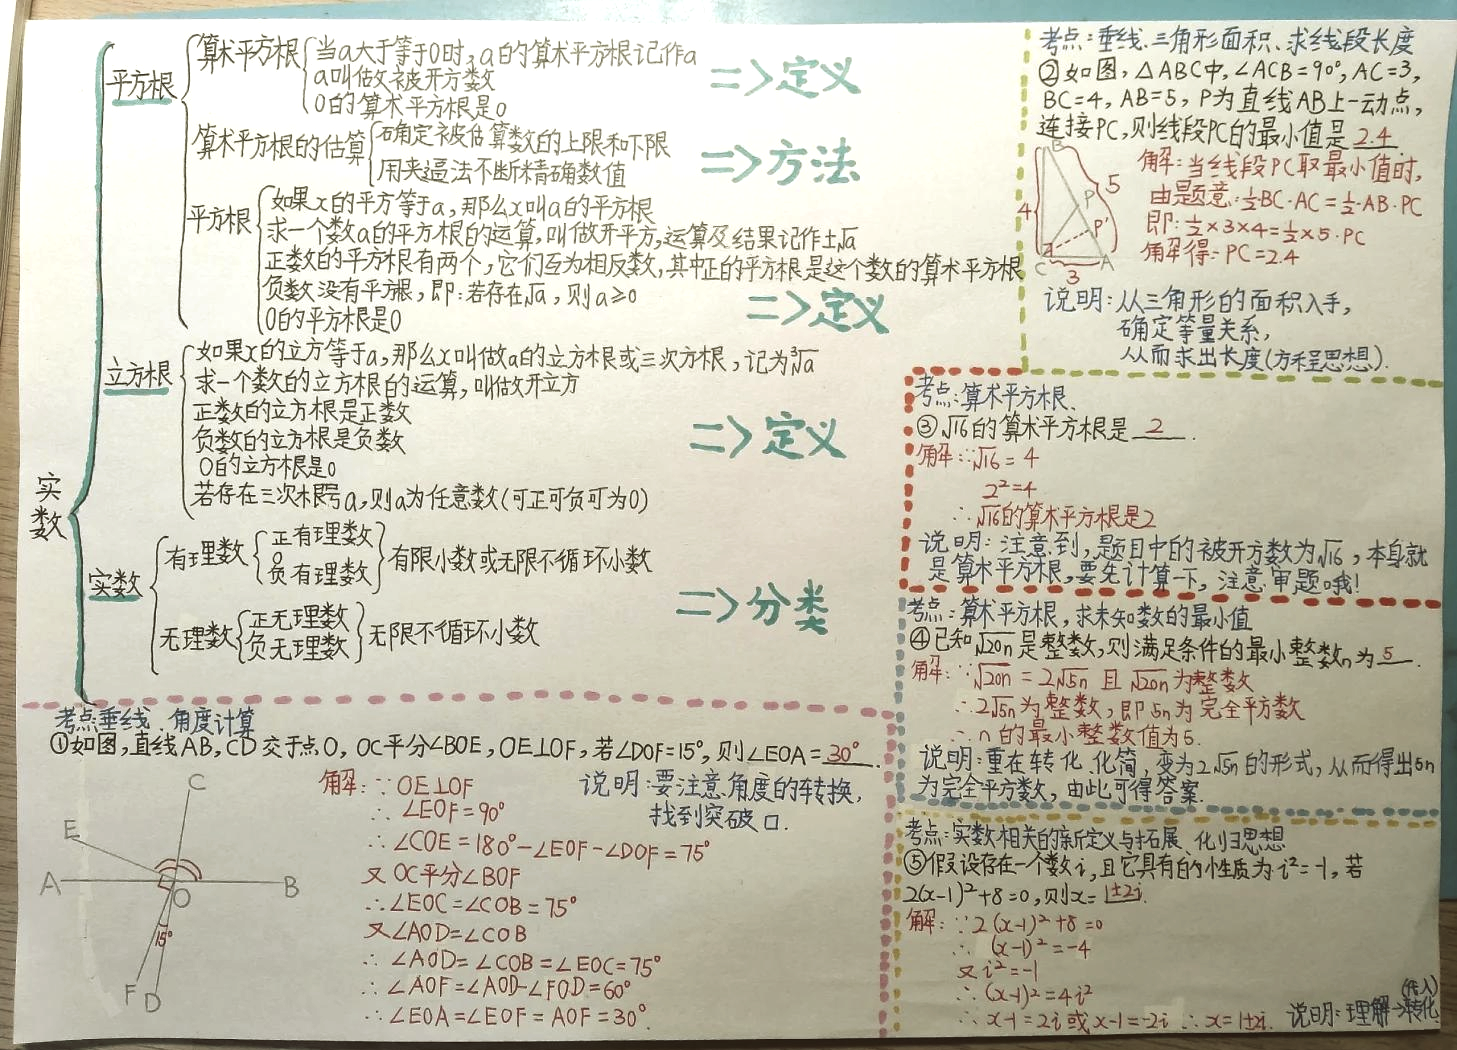 实数
平方根
算术平方根
当a大于等于0时,a的算术平方根记作a
a叫做被开方数
0的算术平方根是0
=>定义
算术平方根的估算
确定被估算数的上限和下限
用夹逼法不断精确数值
=>方法
平方根
如果x的平方等于a,那么x叫a的平方根
求一个数a的平方根的运算,叫做开平方,运算及结果记作±√a
正数的平方根有两个,它们互为相反数,其中正的平方根是这个数的算术平方根
负数没有平方根,即:若存在√a,则a≥0
0的平方根是0
=>定义
立方根
如果x的立方等于a,那么x叫做a的立方根或三次方根,记为³√a
求一个数的立方根的运算,叫做开立方
正数的立方根是正数
负数的立方根是负数
0的立方根是0
若存在三次根号a,则a为任意数(可正可负可为0)
=>定义
实数
有理数
正有理数
0
负有理数
有限小数或无限不循环小数
无理数
正无理数
负无理数
无限不循环小数
=>分类
考点:垂线、角度计算
①如图,直线AB,CD交于点O,OC平分∠BOE,OE⊥OF,若∠DOF=15°,则∠EOA=30°.
C
E
A
B
O
15°
F D
解:∵OE⊥OF
∴∠EOF=90°
∴∠COE=180°-∠EOF-∠DOF=75°
又OC平分∠BOF
∴∠EOC=∠COB=75°
又∠AOD=∠COB
∴∠AOD=∠COB=∠EOC=75°
∴∠AOF=∠AOD-∠FOD=60°
∴∠EOA=∠EOF=AOF=30°.
说明:要注意角度的转换,
找到突破口.
考点:垂线、三角形面积、求线段长度
②如图,△ABC中,∠ACB=90°,AC=3,
BC=4,AB=5,P为直线AB上一动点,
连接PC,则线段PC的最小值是2.4.
B
5
4
P
P'
C
A
3
解:当线段PC取最小值时,
由题意:½BC·AC=½·AB·PC
即:½×3×4=½×5·PC
解得:PC=2.4
说明:从三角形的面积入手,
确定等量关系,
从而求出长度(方程思想).
考点:算术平方根、
③√16的算术平方根是2.
解:∵√16=4
2²=4
∴√16的算术平方根是2
说明:注意到,题目中的被开方数为√16,本身就
是算术平方根,要先计算一下,注意审题哦!
考点:算术平方根,求未知数的最小值
④已知√20n是整数,则满足条件的最小整数n为5.
解:∵√20n=2√5n且√20n为整数
∴2√5n为整数,即5n为完全平方数
∴n的最小整数值为5.
说明:重在转化、化简,变为2√5n的形式,从而得出5n
为完全平方数,由此可得答案.
考点:实数相关的新定义与拓展、化归思想
⑤假设存在一个数i,且它具有的性质为:i²=-1,若
2(x-1)²+8=0,则x=1±2i.
解:∵2(x-1)²+8=0
∴(x-1)²=-4
又i²=-1
∴(x-1)²=4i²
∴x-1=2i或x-1=-2i∴x=1±2i.
(代入)
说明:理解→转化